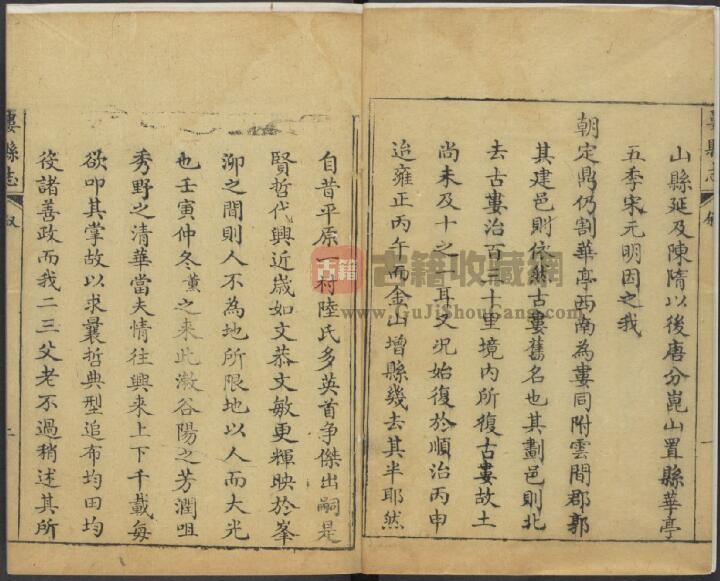 婁縣志
山縣延及陳隋以後唐分崑山置縣華亭
五季宋元明因之我
朝定鼎仍割華亭西南為婁同附雲間郡郭
其建邑則依然古婁舊名也其劃邑則北
去古婁治百二十里境内所復古婁故土
尚未及十之一耳又况始復於順治丙申
迨雍正丙午而金山增縣幾去其半耶然
自昔平原一村陸氏多英首争傑出嗣是
賢哲代興近歲如文恭文敏更輝映於峯
泖之間則人不為地所限地以人而大光
也壬寅仲冬薰之来此漱谷陽之芳潤咀
秀野之清華當夫情往興来上下千載每
欲叩其掌故以求曩哲典型追布均田均
役諸善政而我二三父老不過稍述其所
婁縣志
叙
古籍
古籍收藏網
www.GuJiShouCang.com